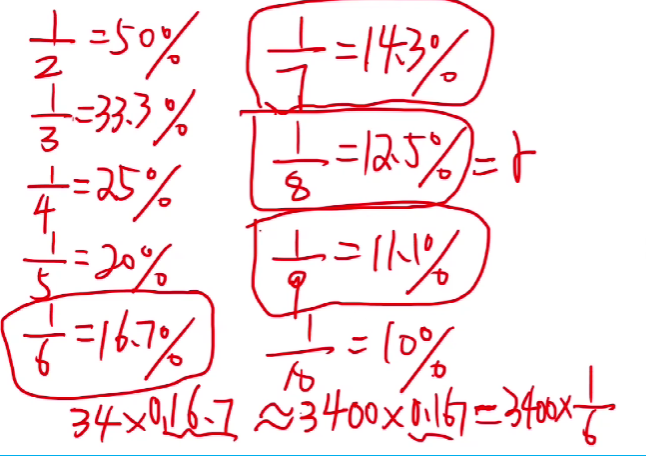 1/2 = 50%
1/3 = 33.3%
1/4 = 25%
1/5 = 20%
1/6 = 16.7%
1/7 = 14.3%
1/8 = 12.5% = r
1/9 = 11.1%
1/10 = 10%
34×0.16.7 ≈ 3400×0.167 = 3400×1/6